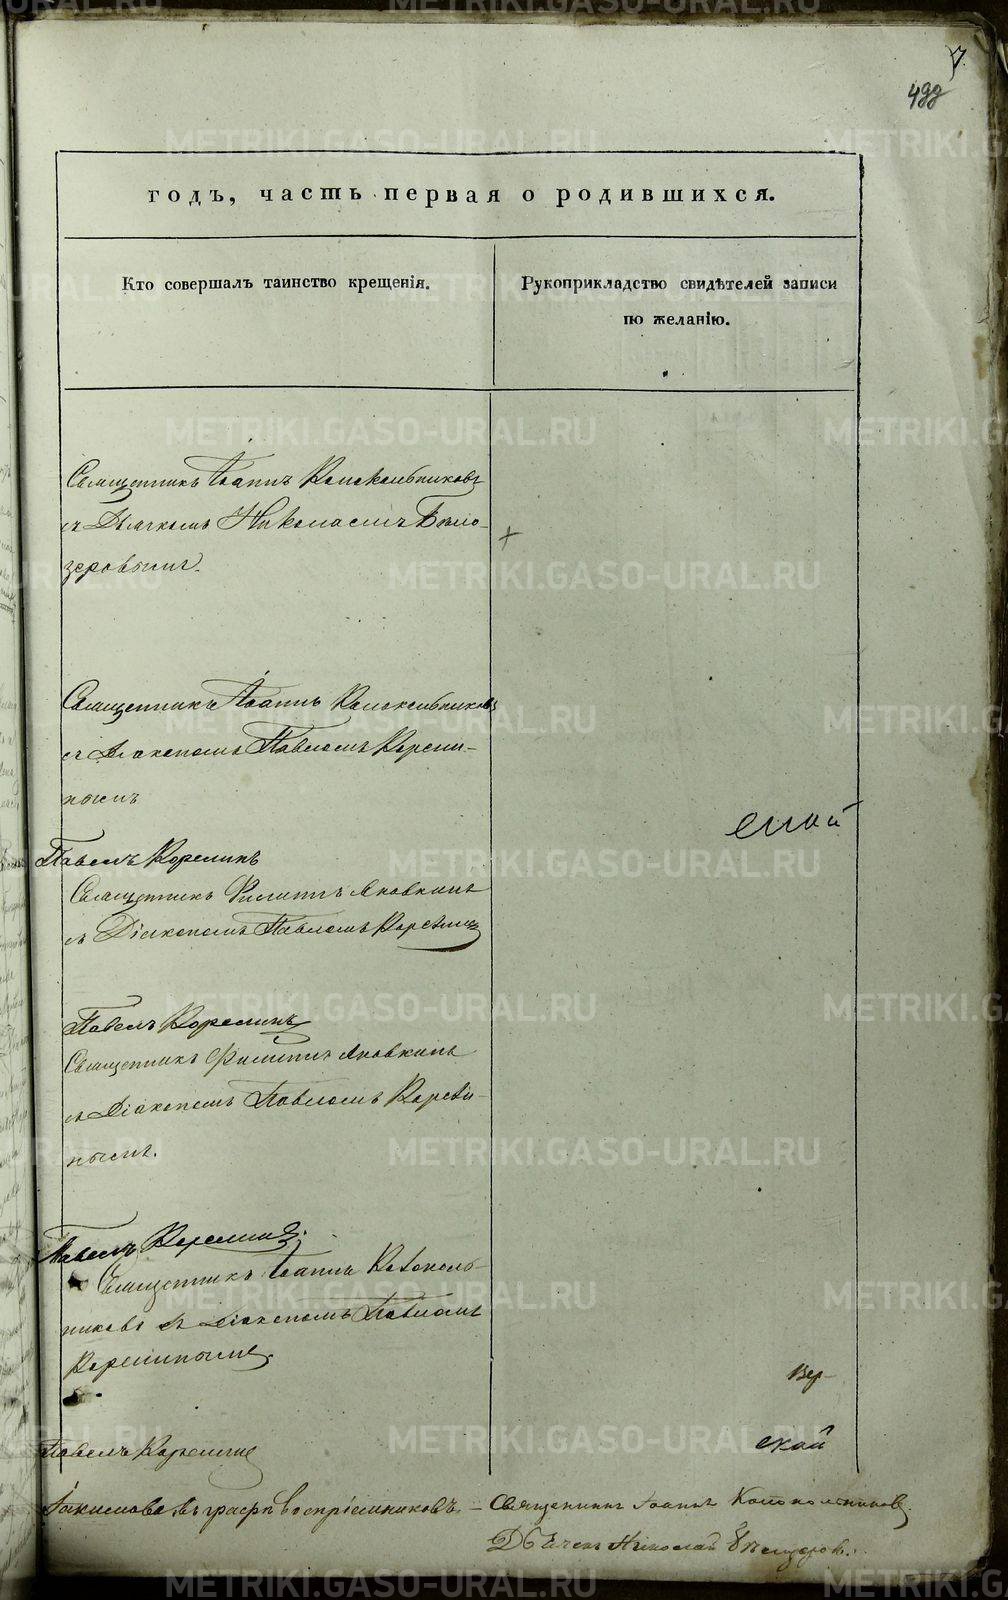 7.
499
годъ, часть первая о родившихся.
Кто совершалъ таинство крещенія.
Рукоприкладство свидѣтелей записи
по желанію.
Священникъ Іоаннъ Колокольниковъ
съ Дьячкомъ Николаемъ Бѣло-
зеровымъ.
Священникъ Іоаннъ Колокольниковъ
съ Діакономъ Павломъ Корели-
нымъ
Павелъ Корелинъ
Священникъ Филиппъ Яновкинъ
съ Діакономъ Павломъ
Павелъ Корелинъ
Священникъ Филиппъ Яновкинъ
съ Діакономъ Павломъ Корели-
нымъ.
Павелъ Корелинъ
Священникъ Іоаннъ Колоколь-
никовъ съ Діакономъ Павломъ
Корелинымъ.
Вер-
Павелъ Корелинъ
ской
въ графѣ воспріемниковъ - Священникъ Іоаннъ Колокольниковъ.
Николай
METRIKI.GASO-URAL.RU